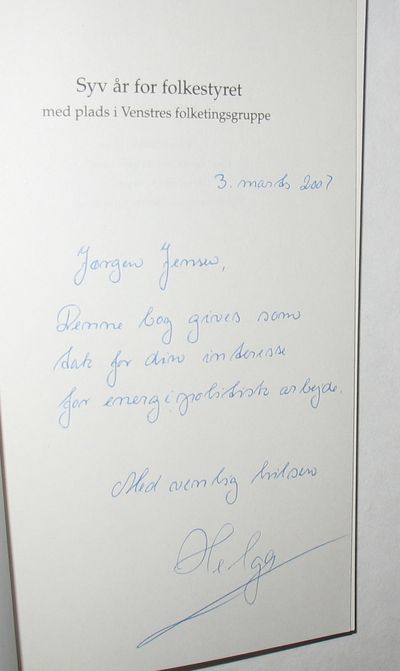 Syv år for folkestyret
med plads i Venstres folketingsgruppe
3. marts 2007
Jørgen Jensen,
Denne bog gives som
tak for din interesse
for energipolitisk arbejde.
Med venlig hilsen
Helga